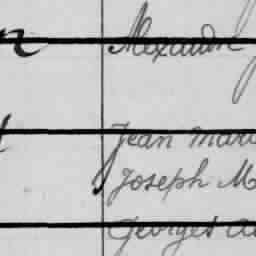 Alexandre
Jean Mari
Joseph M
Georges